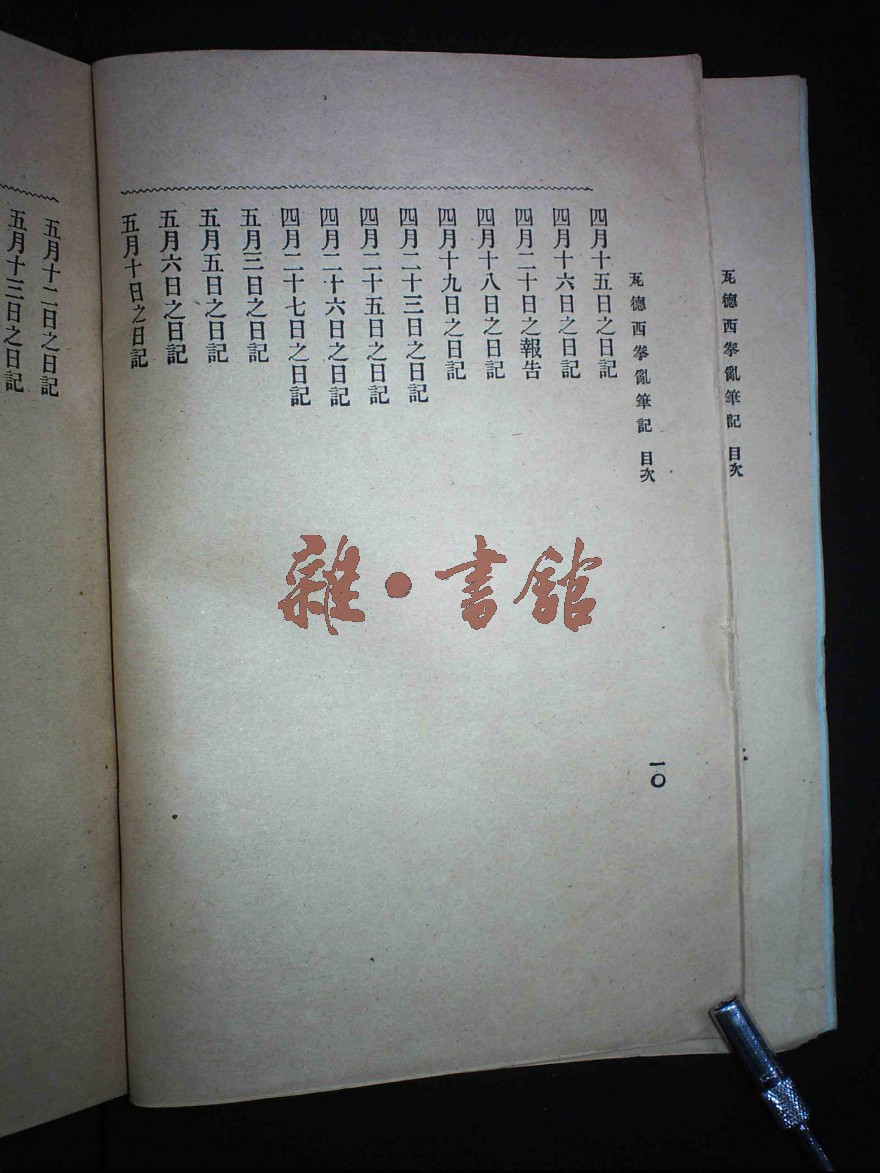 瓦德西拳亂筆記 目次
瓦德西拳亂筆記 目次
一〇
四月十五日之日記
四月十六日之日記
四月二十日之報告
四月十八日之日記
四月十九日之日記
四月二十三日之日記
四月二十五日之日記
四月二十六日之日記
四月二十七日之日記
五月三日之日記
五月五日之日記
五月六日之日記
五月十日之日記
五月十二日之日記
五月十三日之日記
雜·書館